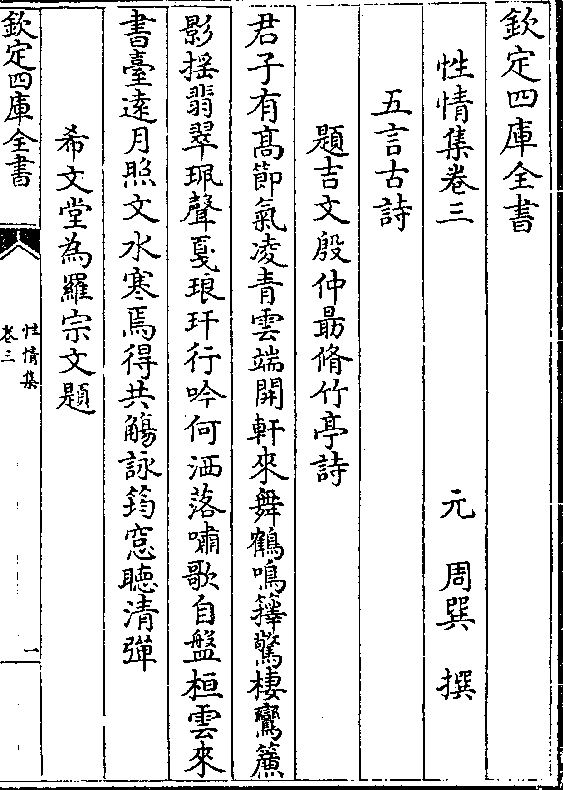 欽定四庫全書
性情集卷三
元 周巽 撰
五言古詩
題吉文殷仲昻脩竹亭詩
君子有髙節氣凌青雲端開軒來舞鶴鳴籜驚棲鸞簾
影揺翡翠珮聲戛琅玕行吟何洒落嘯歌自盤桓雲來
書臺逺月照文水寒焉得共觴詠筠窓聴清彈
希文堂為羅宗文題
欽定四庫全書
性情集
卷三
一